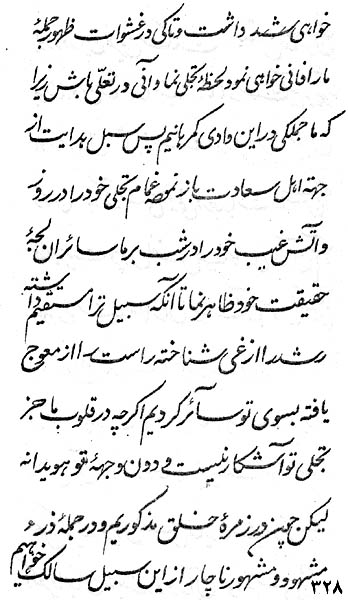 خواهی شد داشت و تا کی در غشوات ظهور جملهٔ
ما را فانی خواهی نمود لحظهٔ تجلی نما و آنی در تعلّی باش زیرا
که ما جملکی در این وادی کمرهانیم پس سبل هدایت از
جهته اهل سعادت باز نموده غمام تجلی خود را در روز
و آتش غیب خود را در شب بر ما سائران لجهٔ
حقیقت خود ظاهر نما تا آنکه سبیل ترا مستقیم داشته
رشد را از غی شناخته راست را از معوج
یافته بسوی تو سائر کردیم اکرچه در قلوب ما جز
تجلی تو آشکار نیست و دون وجههٔ تو هویدا نه
لیکن چون در زمرهٔ خلق مذکوریم و در جملهٔ ذرء
مشهود و مشهور ناچار از این سبیل سالک خواهیم
٣٢٨